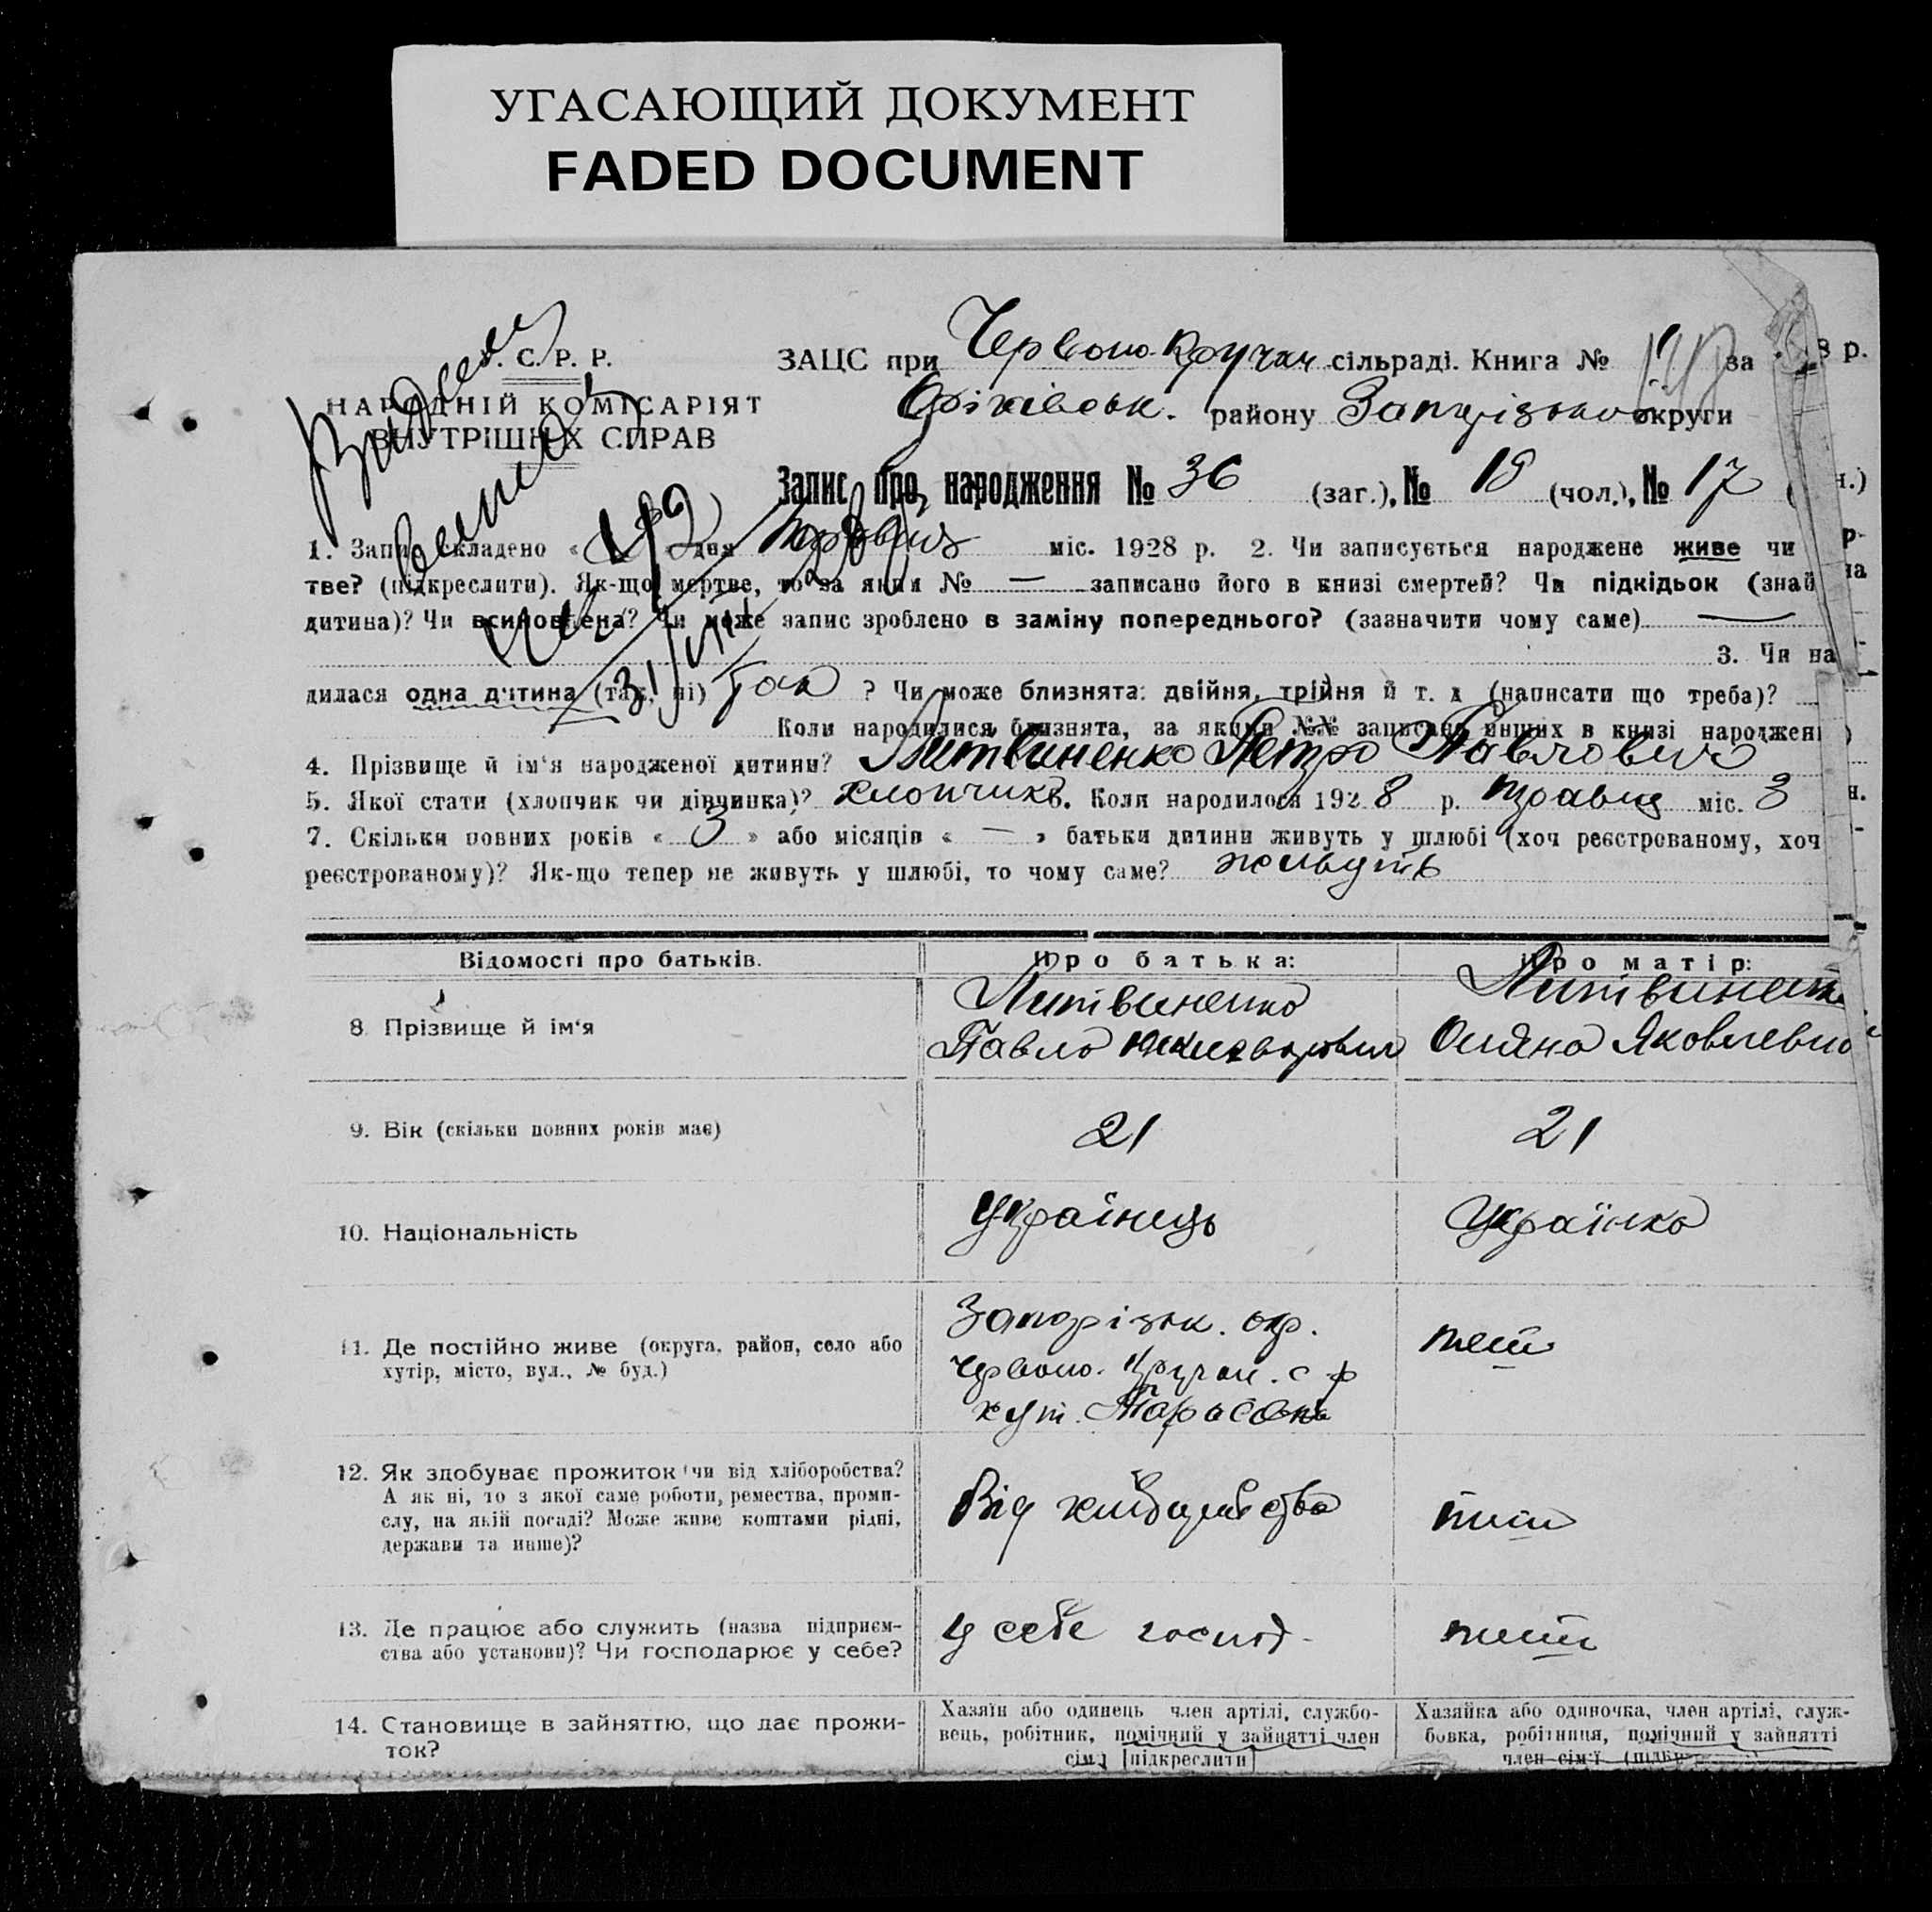 УГАСАЮЩИЙ ДОКУМЕНТ
FADED DOCUMENT
. С. Р. Р.
НАРОДНІЙ КОМІСАРІЯТ
ВНУТРІШНІХ СПРАВ
ЗАЦС при Червоно-Кручан. сільраді. Книга № за 8 р.
Оріхівськ. району Запорізько округи
Запис про народження № 36 (заг.), № 19 (чол.), № 17
1. Запис складено « » дня міс. 1928 р. 2. Чи записується народжене живе чи
тве? (підкреслити). Як-що мертве, то за яким № — записано його в книзі смертей? Чи підкідьок (знай
дитина)? Чи всиновлена? Чи може запис зроблено в заміну попереднього? (зазначити чому саме) —
3. Чи на
дилася одна дитина (так, ні) так ? Чи може близнята: двійня, трійня й т. д (написати що треба)?
Коли народилися близнята, за якими №№ записано инших в книзі народжен
4. Прізвище й ім'я народженої дитини? Литвиненко Петро Павлович
5. Якої стати (хлопчик чи дівчинка)? хлопчик 6. Коли народилося 1928 р. травня міс. 3
7. Скільки повних років « 3 » або місяців « — » батьки дитини живуть у шлюбі (хоч реєстрованому, хоч
реєстрованому)? Як-що тепер не живуть у шлюбі, то чому саме? живуть
Відомості про батьків. Про батька: Про матір:
8. Прізвище й ім'я
Литвиненко
Павло
Литвиненк
Оляна Яковлевна
9. Вік (скільки повних років має) 21 21
10. Національність Українець Українка
11. Де постійно живе (округа, район, село або
хутір, місто, вул., № буд.)
Запорізьк. окр.
Червоно-Кручан. с р
хут. Тарасовка
теж
12. Як здобуває прожиток (чи від хліборобства?
А як ні, то з якої саме роботи, ремества, проми-
слу, на якій посаді? Може живе коштами рідні,
держави та инше)?
Від хліборобства
теж
13. Де працює або служить (назва підприєм-
ства або установи)? Чи господарює у себе?
у себе господ.
теж
14. Становище в зайняттю, що дає прожи-
ток?
Хазяїн або одинець член артілі, службо-
вець, робітник, помічний у зайнятті член
сім'ї [підкреслити]
Хазяйка або одиночка, член артілі, служ-
бовка, робітниця, помічний у зайнятті
член сім'ї